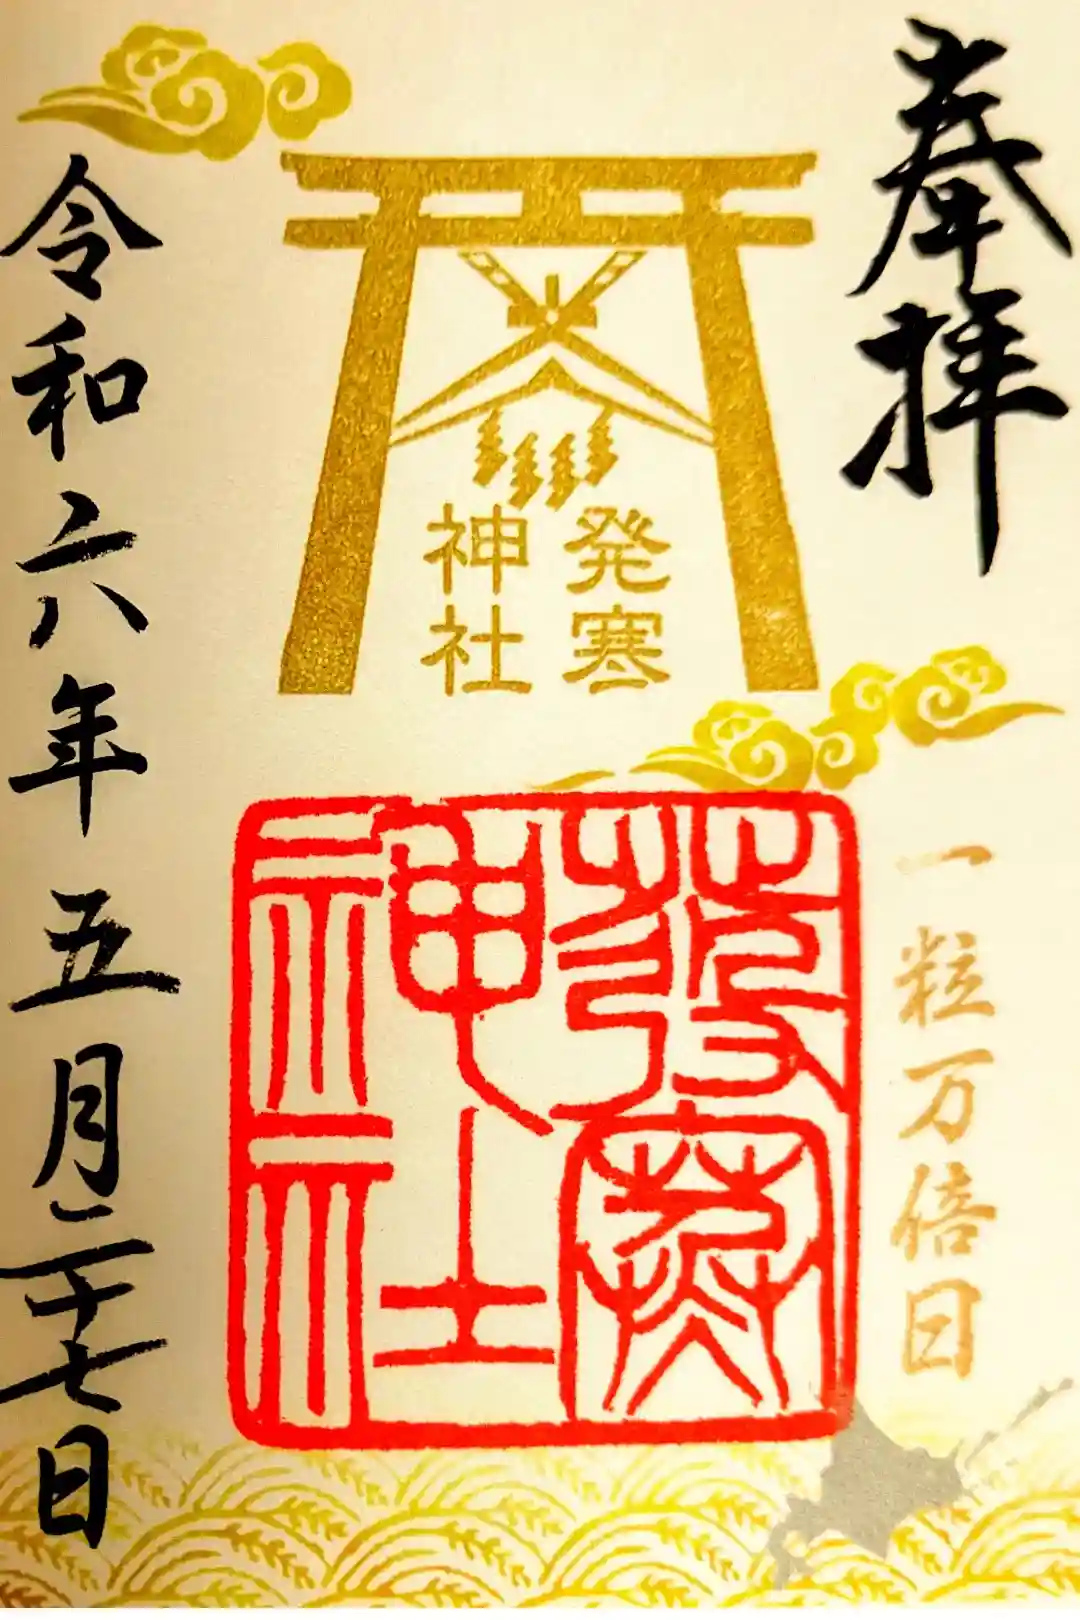 奉拝
一粒万倍日
発寒
神社
發寒
神社
令和六年五月二十七日